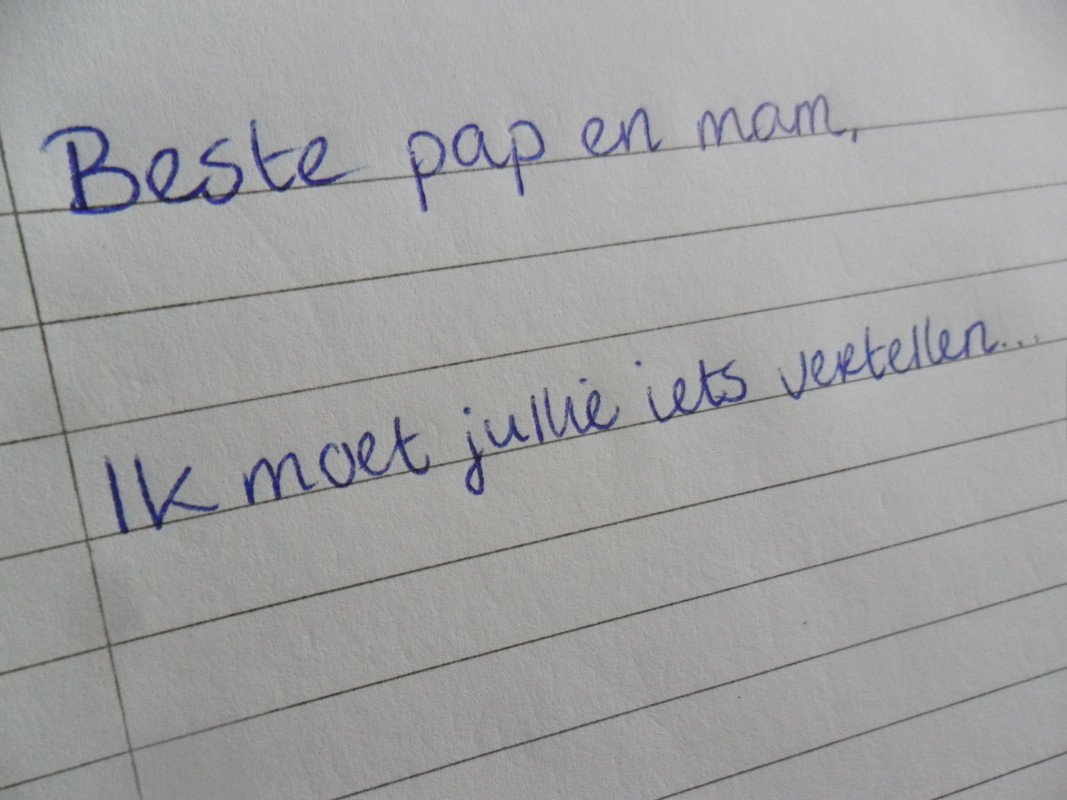 Beste pap en mam,
Ik moet jullie iets vertellen...